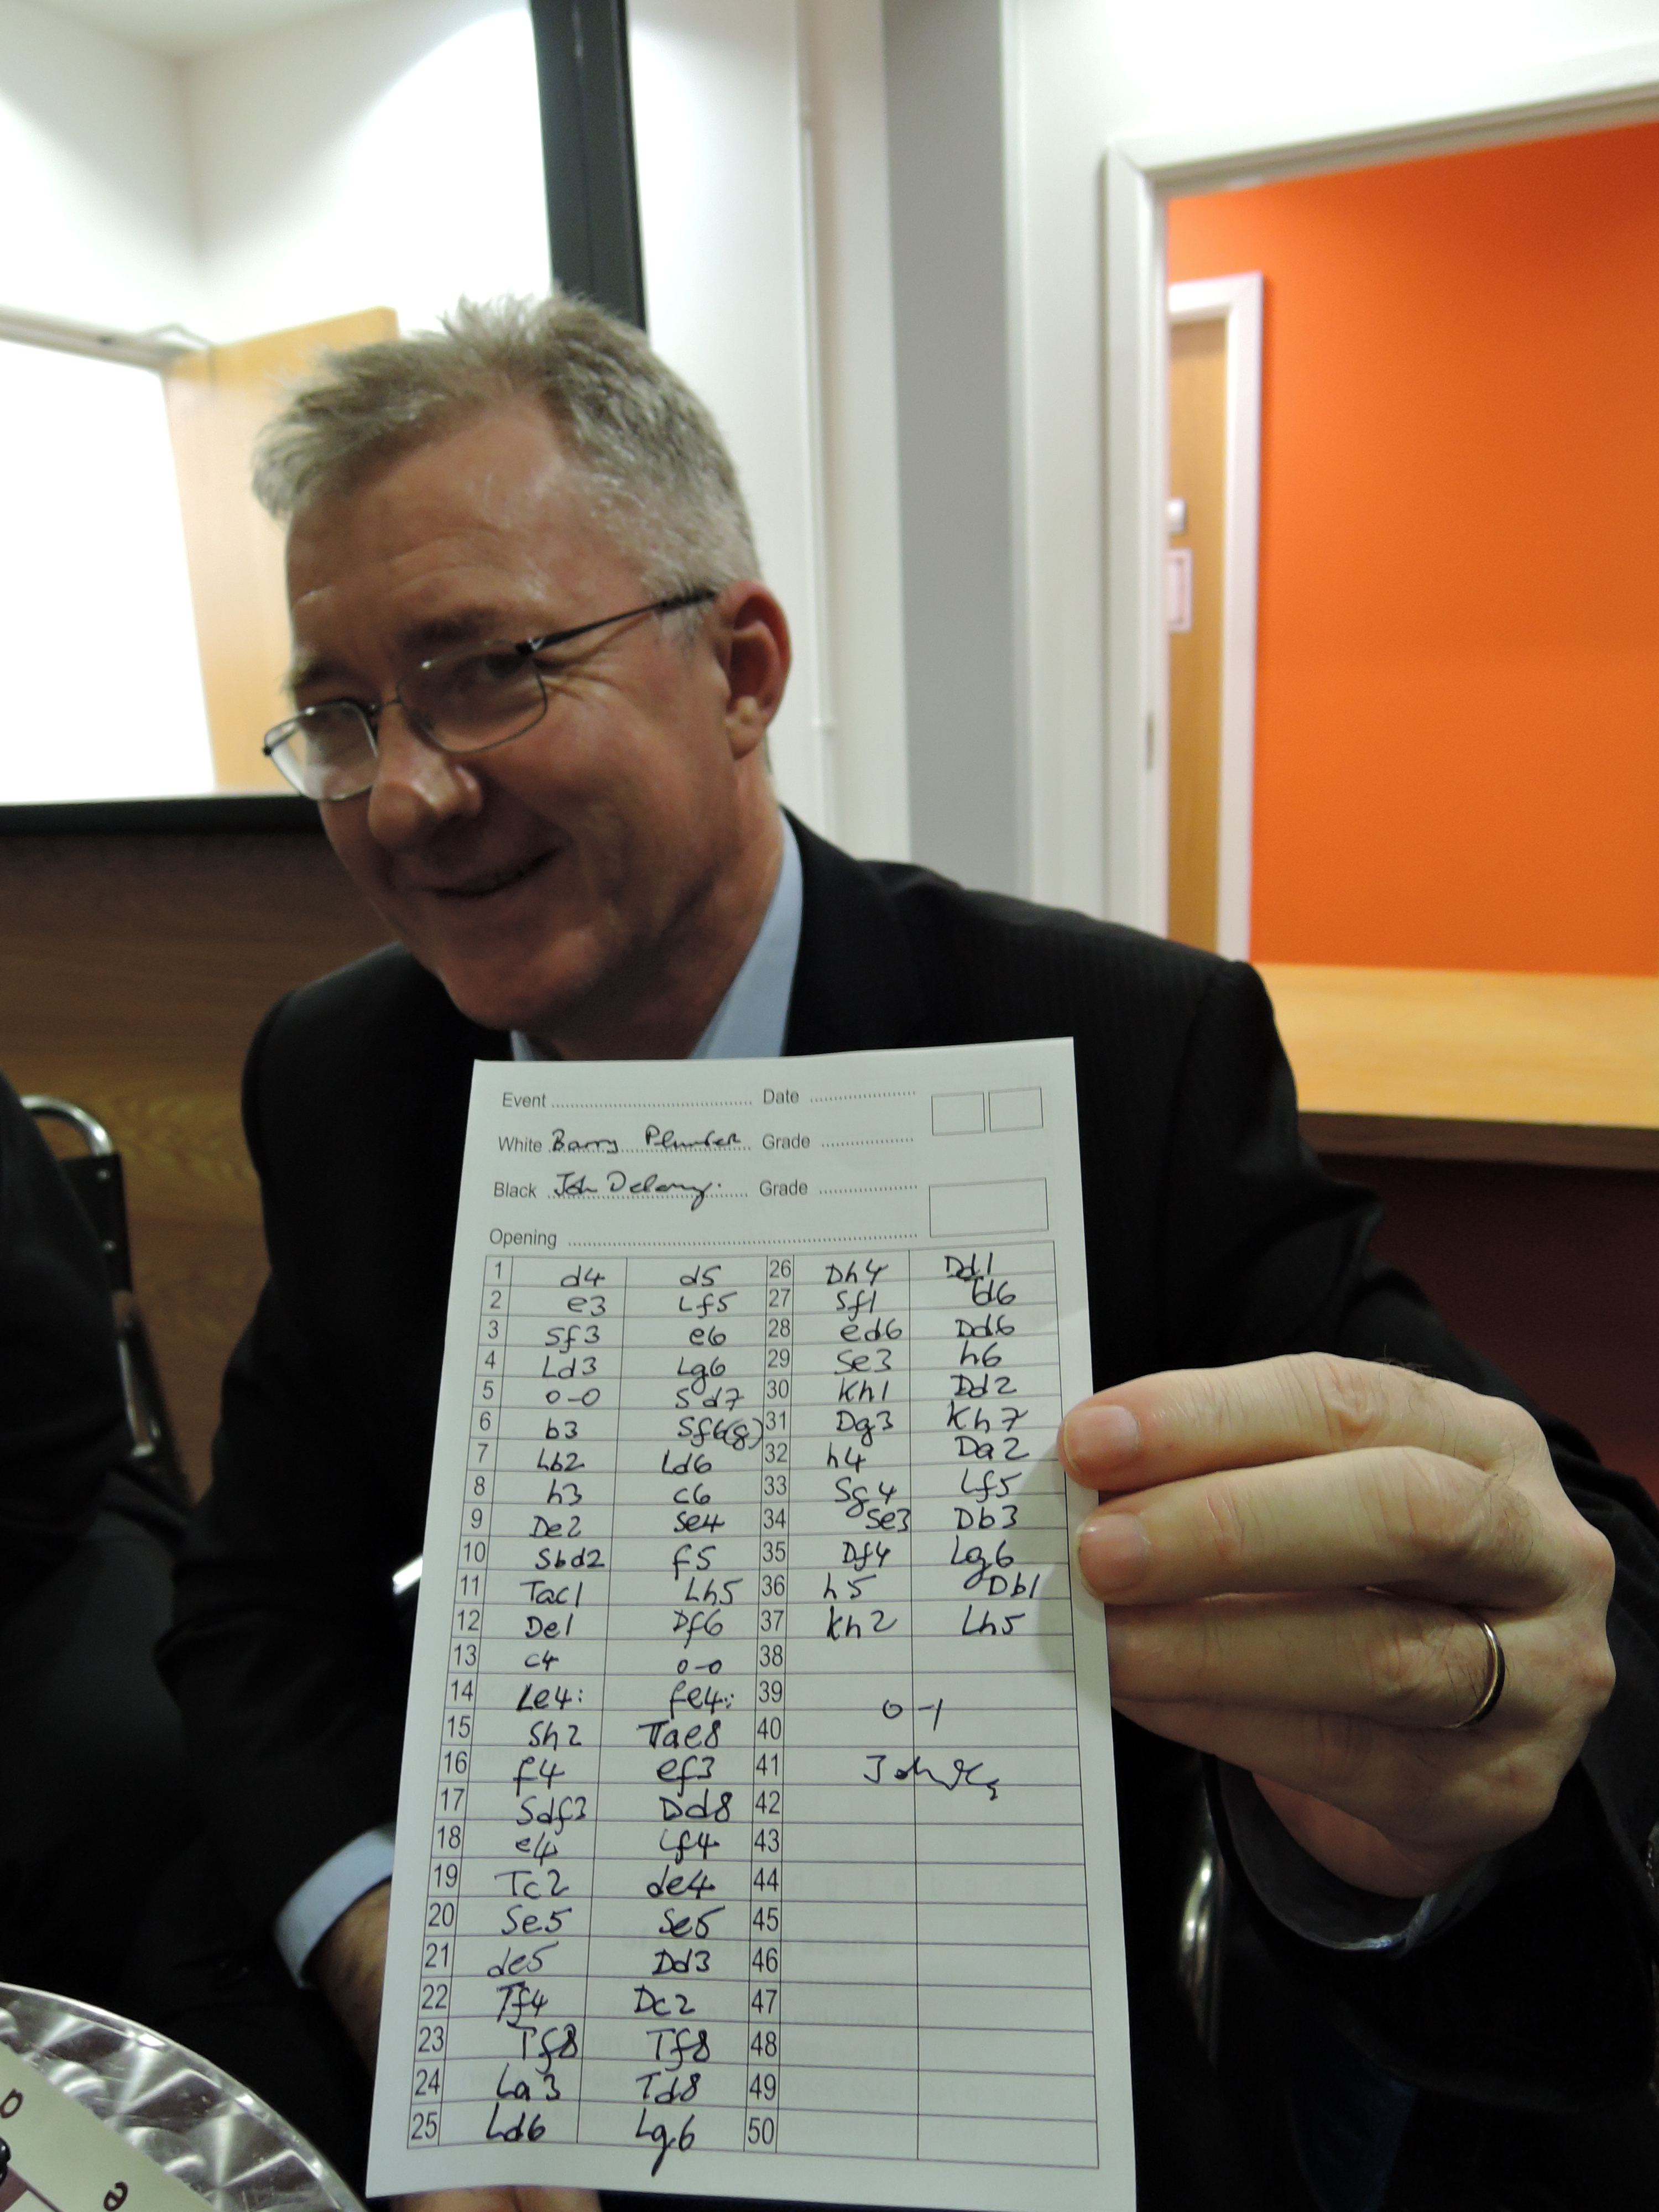 Event Date
White Barry Plumber Grade
Black John Delany. Grade
Opening
1 d4 d5 26 Dh4 Dd1
2 e3 Lf5 27 Sf1 Td6
3 Sf3 e6 28 ed6 Dd6
4 Ld3 Lg6 29 Se3 h6
5 0-0 Sd7 30 Kh1 Dd2
6 b3 Sf6(g) 31 Dg3 Kh7
7 Lb2 Ld6 32 h4 Da2
8 h3 c6 33 Sg4 Lf5
9 De2 Se4 34 Se3 Db3
10 Sbd2 f5 35 Df4 Lg6
11 Tac1 Lh5 36 h5 Db1
12 De1 Df6 37 Kh2 Lh5
13 c4 0-0 38
14 Le4: fe4: 39 0-1
15 Sh2 Tae8 40
16 f4 ef3 41
17 Sdf3 Dd8 42
18 e4 Lf4 43
19 Tc2 de4 44
20 Se5 Se5 45
21 de5 Dd3 46
22 Tf4 Dc2 47
23 Tf8 Tf8 48
24 La3 Td8 49
25 Ld6 Lg6 50
e